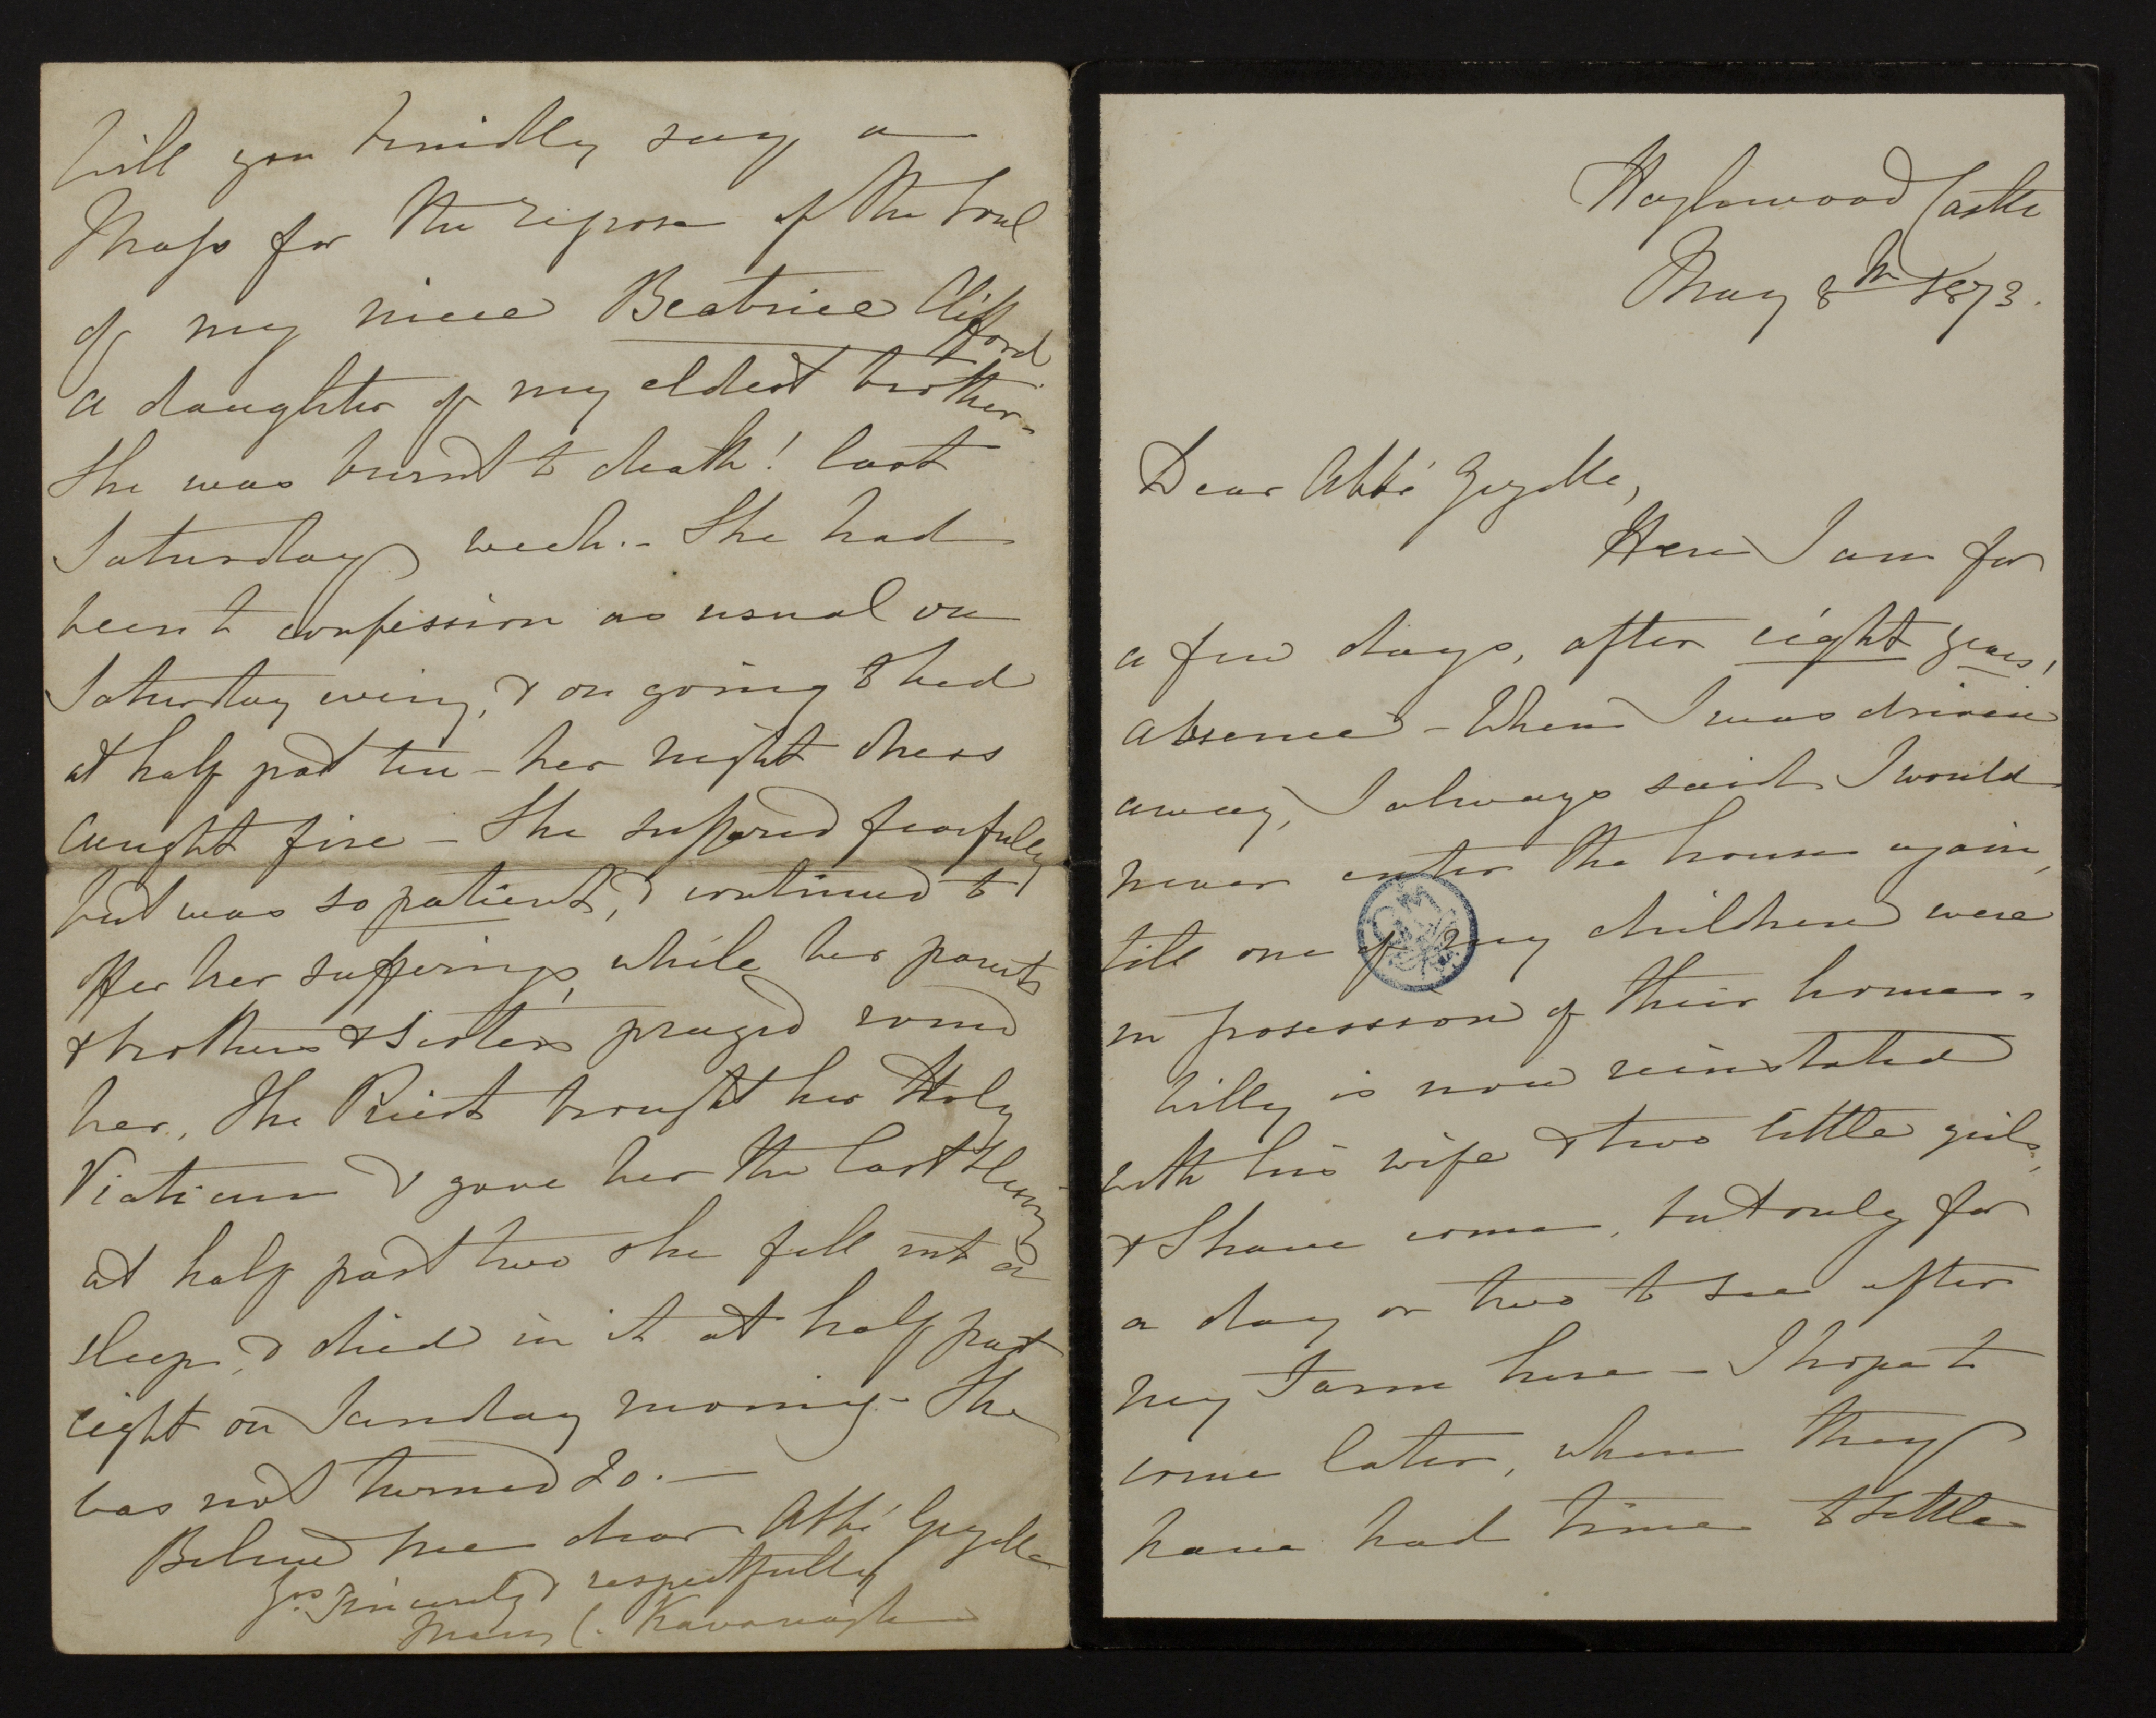 Hazlewood Castle
May 8th 1873.
Dear Abbé Gezelle,
Here I am for
a few days, after eight years,
absence – When I was driven
away, I always said I would
never enter the house again,
till one of my children were
in posession of their home –
Willy is now reinstated
with his wife & two little girls,
& I have come, but only for
a day or two to see after
my farm here – I hope to
come later, when they
have had time to settle
Will you kindly say a
Mass for the repose of the soul
of my niece Beatrice Clifford
a daughter of my eldest brother –
She was burnt to death! last
Saturday week. – She had
been to confession as usual on
Saturday eving, & on going to bed
at half past ten – her night dress
caught fire – She suffered fearfully
but was so patient, & continued to
offer her sufferings, while her parents
& brothers & sisters prayed round
her, The Priest brought her Holy
Viaticum & gave her the last
at half past two she fell into a
sleep, & died in it at half past
eight on Sunday morning – She
was not turned 20. –
Believe me dear Abbé Gezelle
Yrs sincerely & respectfully
Mary C. Kavanagh